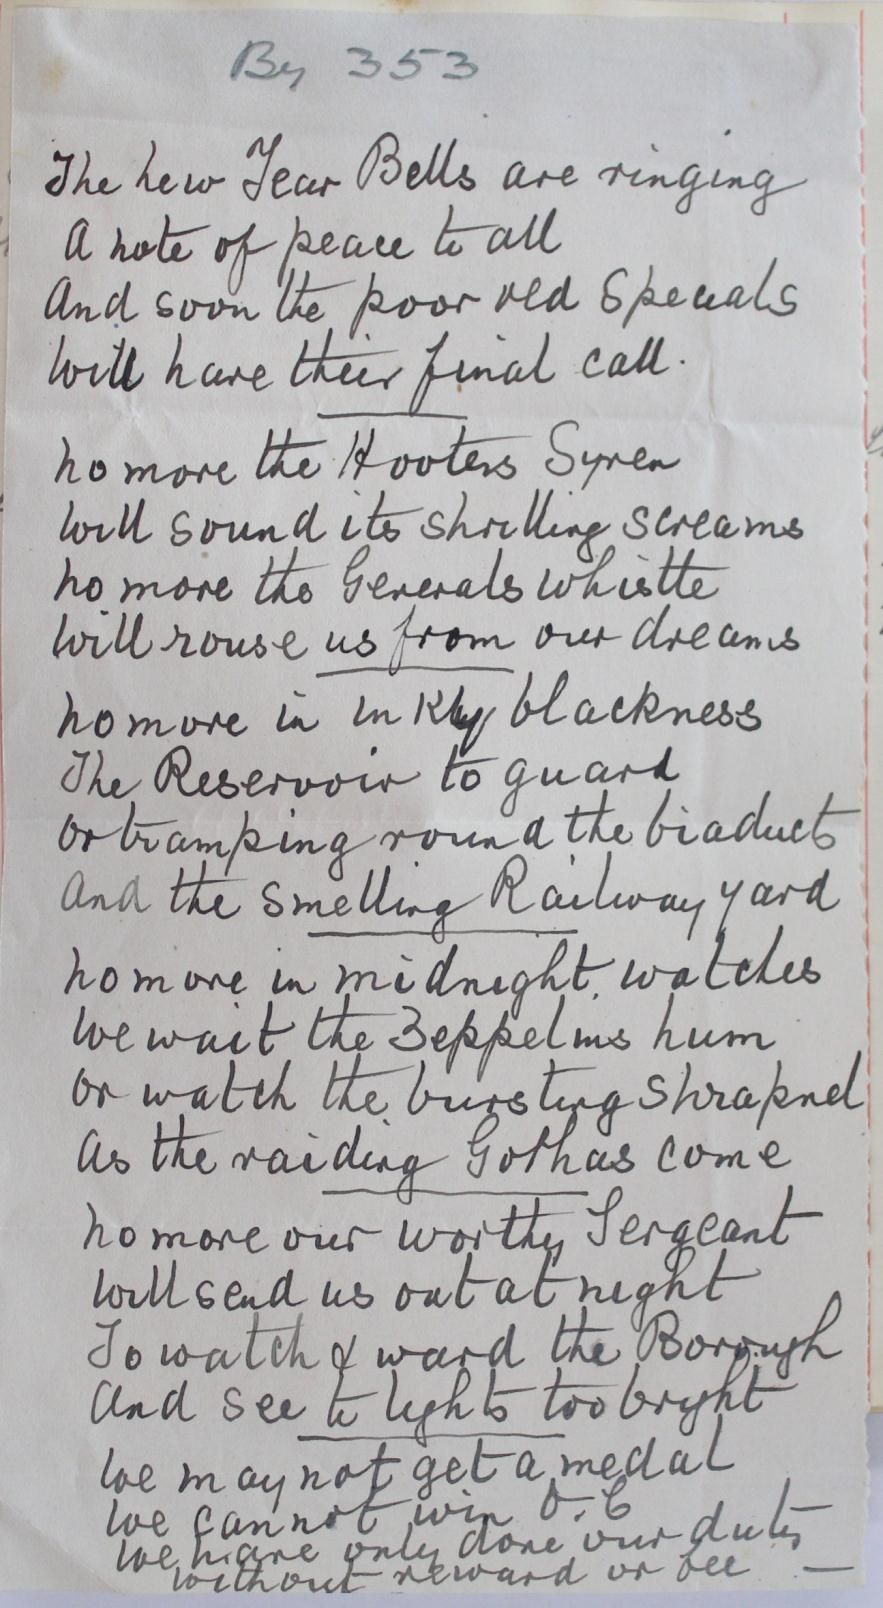 By 353
The New Year Bells are ringing
A note of peace to all
And soon the poor old Specials
Will have their final call.
No more the Hooters Syren
Will sound its shrilling screams
No more the Generals whistle
Will rouse us from our dreams
No more in inky blackness
The Reservoir to guard
Or tramping round the viaducts
And the smelling Railway yard
No more in midnight watches
We wait the Zeppelins hum
Or watch the bursting shrapnel
As the raiding Gothas come
No more our worthy Sergeant
Will send us out at night
To watch & ward the Borough
And see to lights too bright
We may not get a medal
We cannot win V.C
We have only done our duty
Without reward or fee —